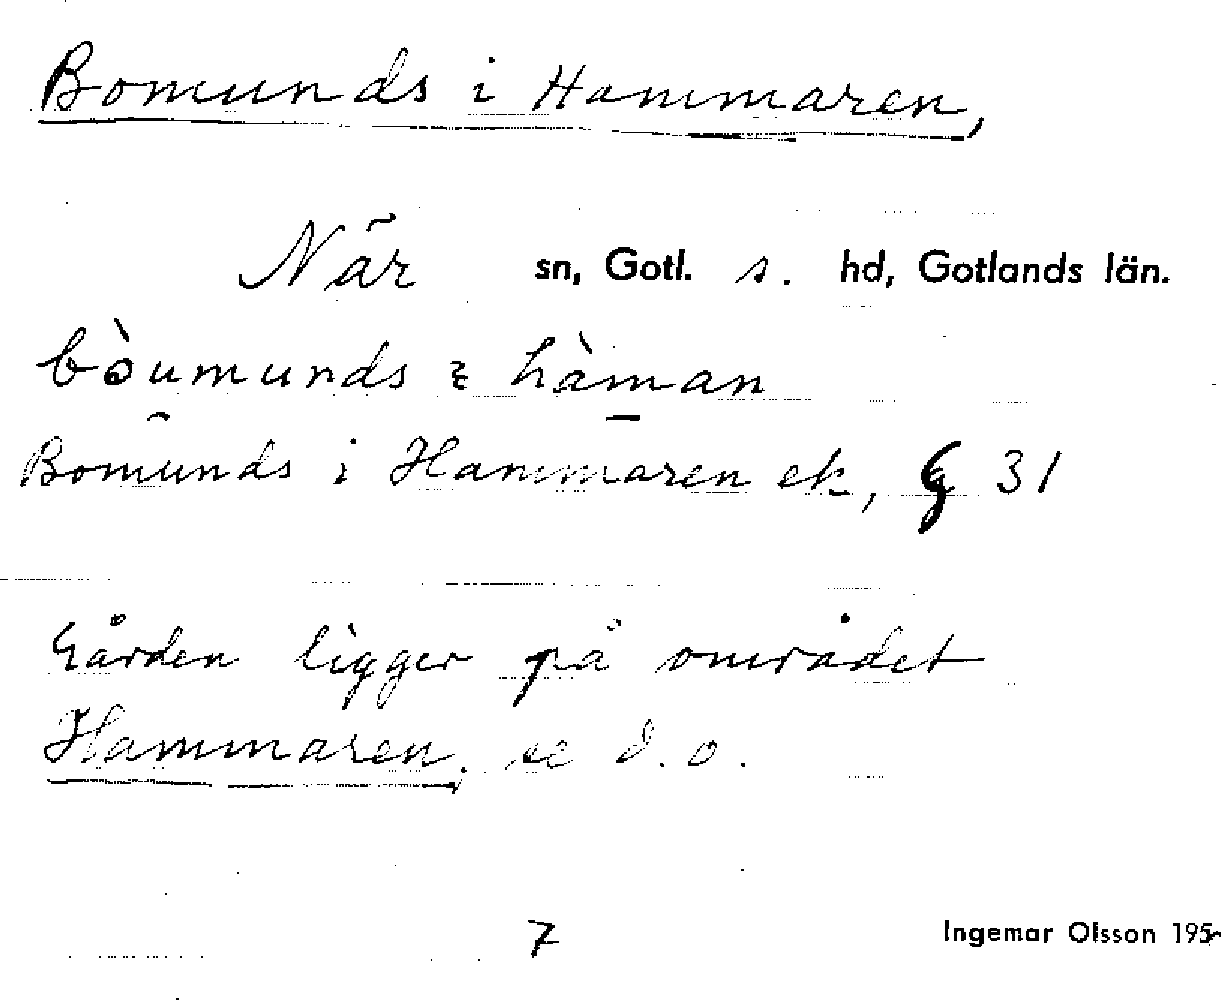 Bomunds i Hammaren,
När sn, Gotl. s. hd, Gotlands län.
bòumunds ı hàman
Bomunds i Hammaren ek, G 31
Gården ligger på området
Hammaren, se d. o.
7
Ingemar Olsson 195